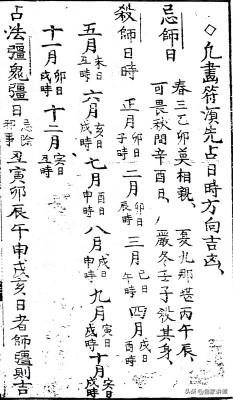 ◇凡畫符須先占日時方向吉凶、
忌師日
春三乙卯莫相親、夏九那堪丙午辰、
可畏秋間辛酉日、嚴冬壬子殺其身、
殺師日時 正月卯日子時 二月卯日辰時 三月巳日午時 四月戌日酉時
五月未日丑時 六月戌時 七月酉日申時 八月戌日申時 九月寅日戌時 十月亥日戌時
十一月卯日戌時 十二月寅日丑時
占法彊鬼彊日忌除邪事 丑寅卯辰午申戌亥日者師彊則吉